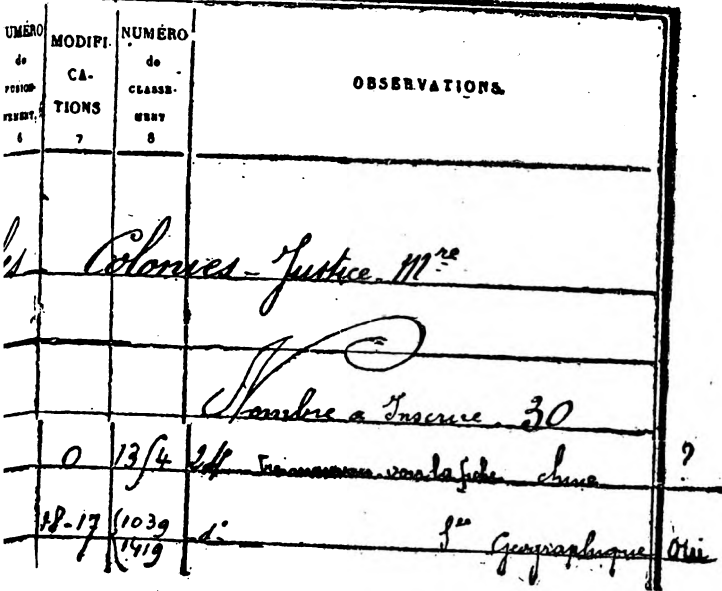 UMÉRO
de
6
MODIFI-
CA-
TIONS
7
NUMÉRO
de
CLASSE-
MENT
8
OBSERVATIONS.
Colonies - Justice Mre
Nombre a Inscrire 30
0 13/4 la fiche ?
18-17 1039 do Sce Geographique Oui
1419